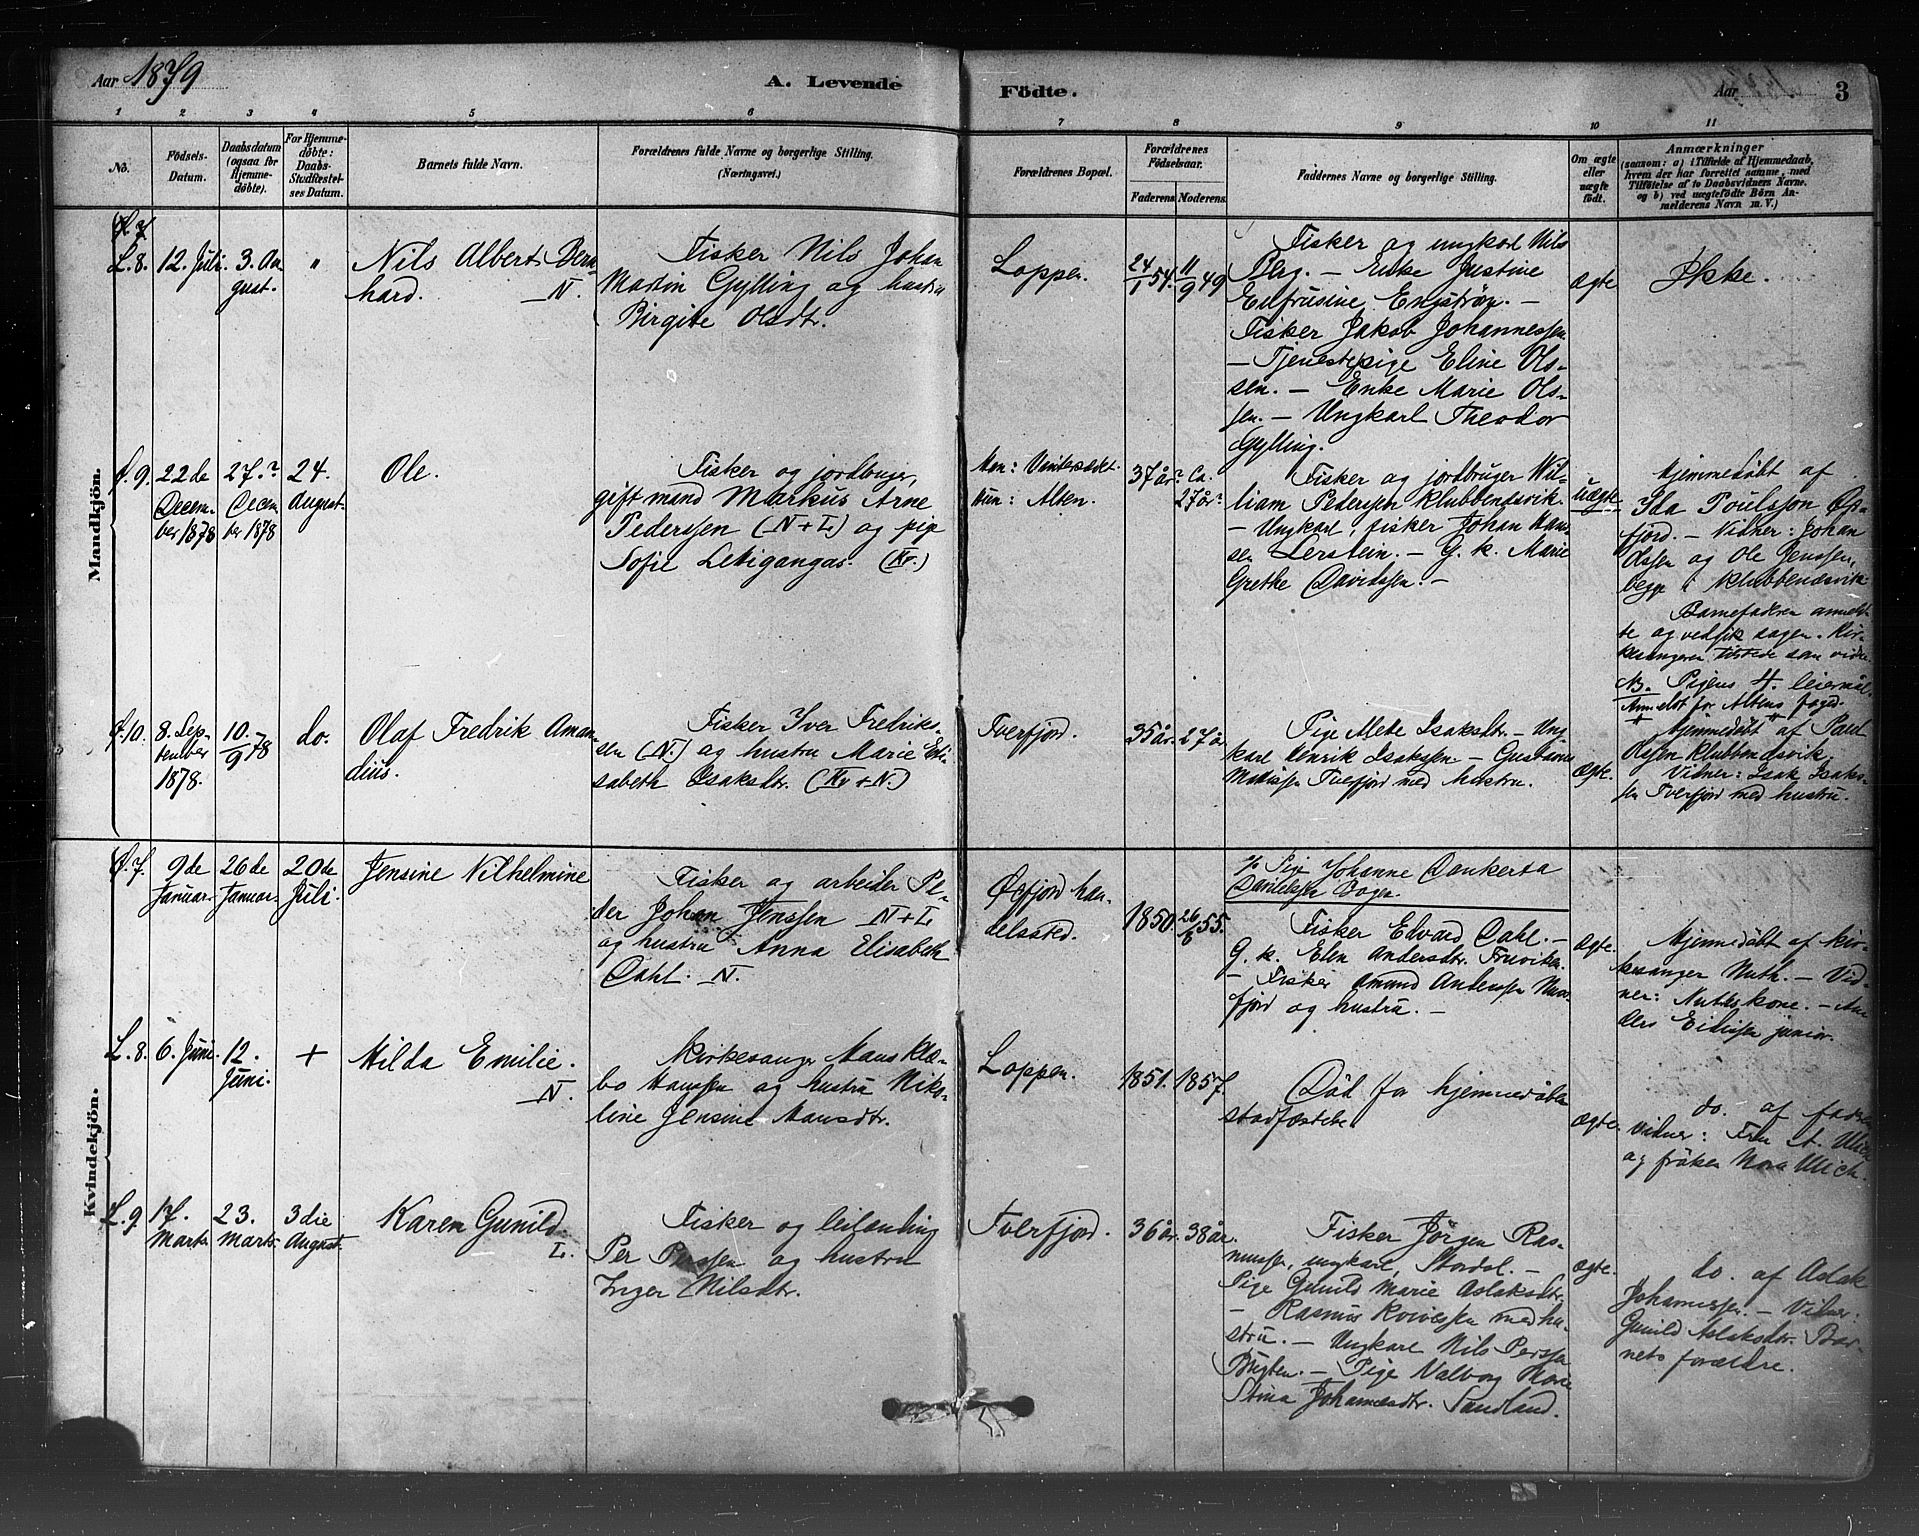 Aar 1879
A. Levende
Födte.
Aar
3
1
2
3
4
5
6
7
8
9
10
11
No.
Födsels-
Datum.
Daabsdatum
(ogsaa for
Hjemme-
döbte).
For Hjemme-
döbte:
Daabs-
Stadfæstel-
ses Datum.
Barnets fulde Navn.
Forældrenes fulde Navne og borgerlige Stilling.
(Næringsvei.)
Forældrenes Bopæl.
Forældrenes
Födselsaar.
Faderens
Moderens.
Faddernes Navne og borgerlige Stilling.
Om ægte
eller
uægte
födt.
Anmærkninger
(saasom: a) i Tilfælde af Hjemmedaab,
hvem der har forrettet samme, med
Tilföielse af to Daabsvidners Navne,
og b) ved uægtefödte Börn An-
melderens Navn m. V.)
Mandkjön.
L. 8.
12. Juli.
3. Au
gust.
"
Nils Albert Bern
hard. N.
Fisker Nils Johan
Martin Gylling og hustru
Birgite Olsdtr.
Loppen.
24/1 54.
11/9 49
Fisker og ungkarl Nils
Berg. — Enke Justine
Eufrusine Engström. —
Fisker Jakob Johannessen
— Tjenestepige Eline Ols-
sen. — Enke Marie Ols-
sen. — Ungkarl Theodor
Gylling.
ægte
Ikke.
Ø. 9.
22de
Decem-
ber 1878
27.?
Decem
ber 1878
24.
August.
Ole.
Fisker og jordbruger,
gift mand Markus Arne
Pederssen (N+L) og pige
Sofie Letigangas. (Kv.)
Han:
Hun: Alten.
37 år?
Ca.
27 år?
Fisker og jordbruger Wil-
liam Pedersen Klubbendsvik.
— Ungkarl, fisker Johan Han-
sen Lerstein. — G. k. Marie
Grethe Davidssen. —
uægte
Hjemmedöbt af
Ida Poulsson Øks-
fjord. — Vidner: Johan
Olssen og Ole Jenssen,
begge i Klubbendsvik
Barnefaderen anmeld-
te og vedgik sagen. Kir-
kesangeren tilstede som vidne
NB. Pigens 4. leiermål.
Anmeldt for Altens foged.
Ø. 10.
8. Sep-
tember
1878.
10/9 78
do.
Olaf Fredrik Aman-
dius.
Fisker Iver Fredriks-
sen (N.) og hustru Marie Eli-
sabeth Isaksdtr. (Kv+N.)
Tverfjord.
35 år.
27 år
Pige Mete Isaksdtr. — Ung
karl Henrik Isakssen — Gustava
Mathissen Tverfjord med hustru.
ægte.
Hjemmedöbt af Paul
Olssen Klubbendsvik
Vidner: Isak Isaks-
sen Tverfjord med hustru.
Kvindekjön.
Ø. 7.
9de
Januar.
26de
Januar.
20de
Juli.
Jensine Vilhelmine
Fisker og arbeider Pe-
der Johan Jenssen N+L
og hustru Anna Elisabeth
Dahl. N.
Øxfjord han-
delssted.
1850.
26/6 55.
Pige Johanne Dankerta
Danielsen Boger.
Fisker Edvard Dahl. —
G. k. Elen Andersdtr. Truviken.
— Fisker Amund Anderssen
fjord og hustru. —
ægte.
Hjemmedöbt af kir-
kesanger Muth. — Vid-
ner: Muths kone. — An
ders Eidissen junior.
L. 8.
6. Juni.
12.
Juni.
+
Hilda Emilie.
N.
Kirkesanger Hans Klæ-
bo Hanssen og hustru Niko-
line Jensine Hansdtr.
Loppen.
1851.
1857.
Död før hjemmedåben
stadfæstedes
ægte.
do. af fader
vidner: Fru A. Ulich
og fröken Nora Ulich.
L. 9.
17.
Marts
23.
Marts
3die
August.
Karen Gunild.
L.
Fisker og leilending
Per Perssen og hustru
Inger Nilsdtr.
Tverfjord.
36 år.
38 år.
Fisker Jörgen Ras-
mussen, ungkarl, Stordal. —
Pige Gunild Marie Aslaksdtr.
— Rasmus med hu-
stru. — Ungkarl Nils Perssen
Bugten. — Pige Valborg
Stina Johannesdtr. Sandland.
ægte.
do. af Aslak
Johannessen. — Vidner:
Gunild Aslaksdtr. Bar-
nets forældre.